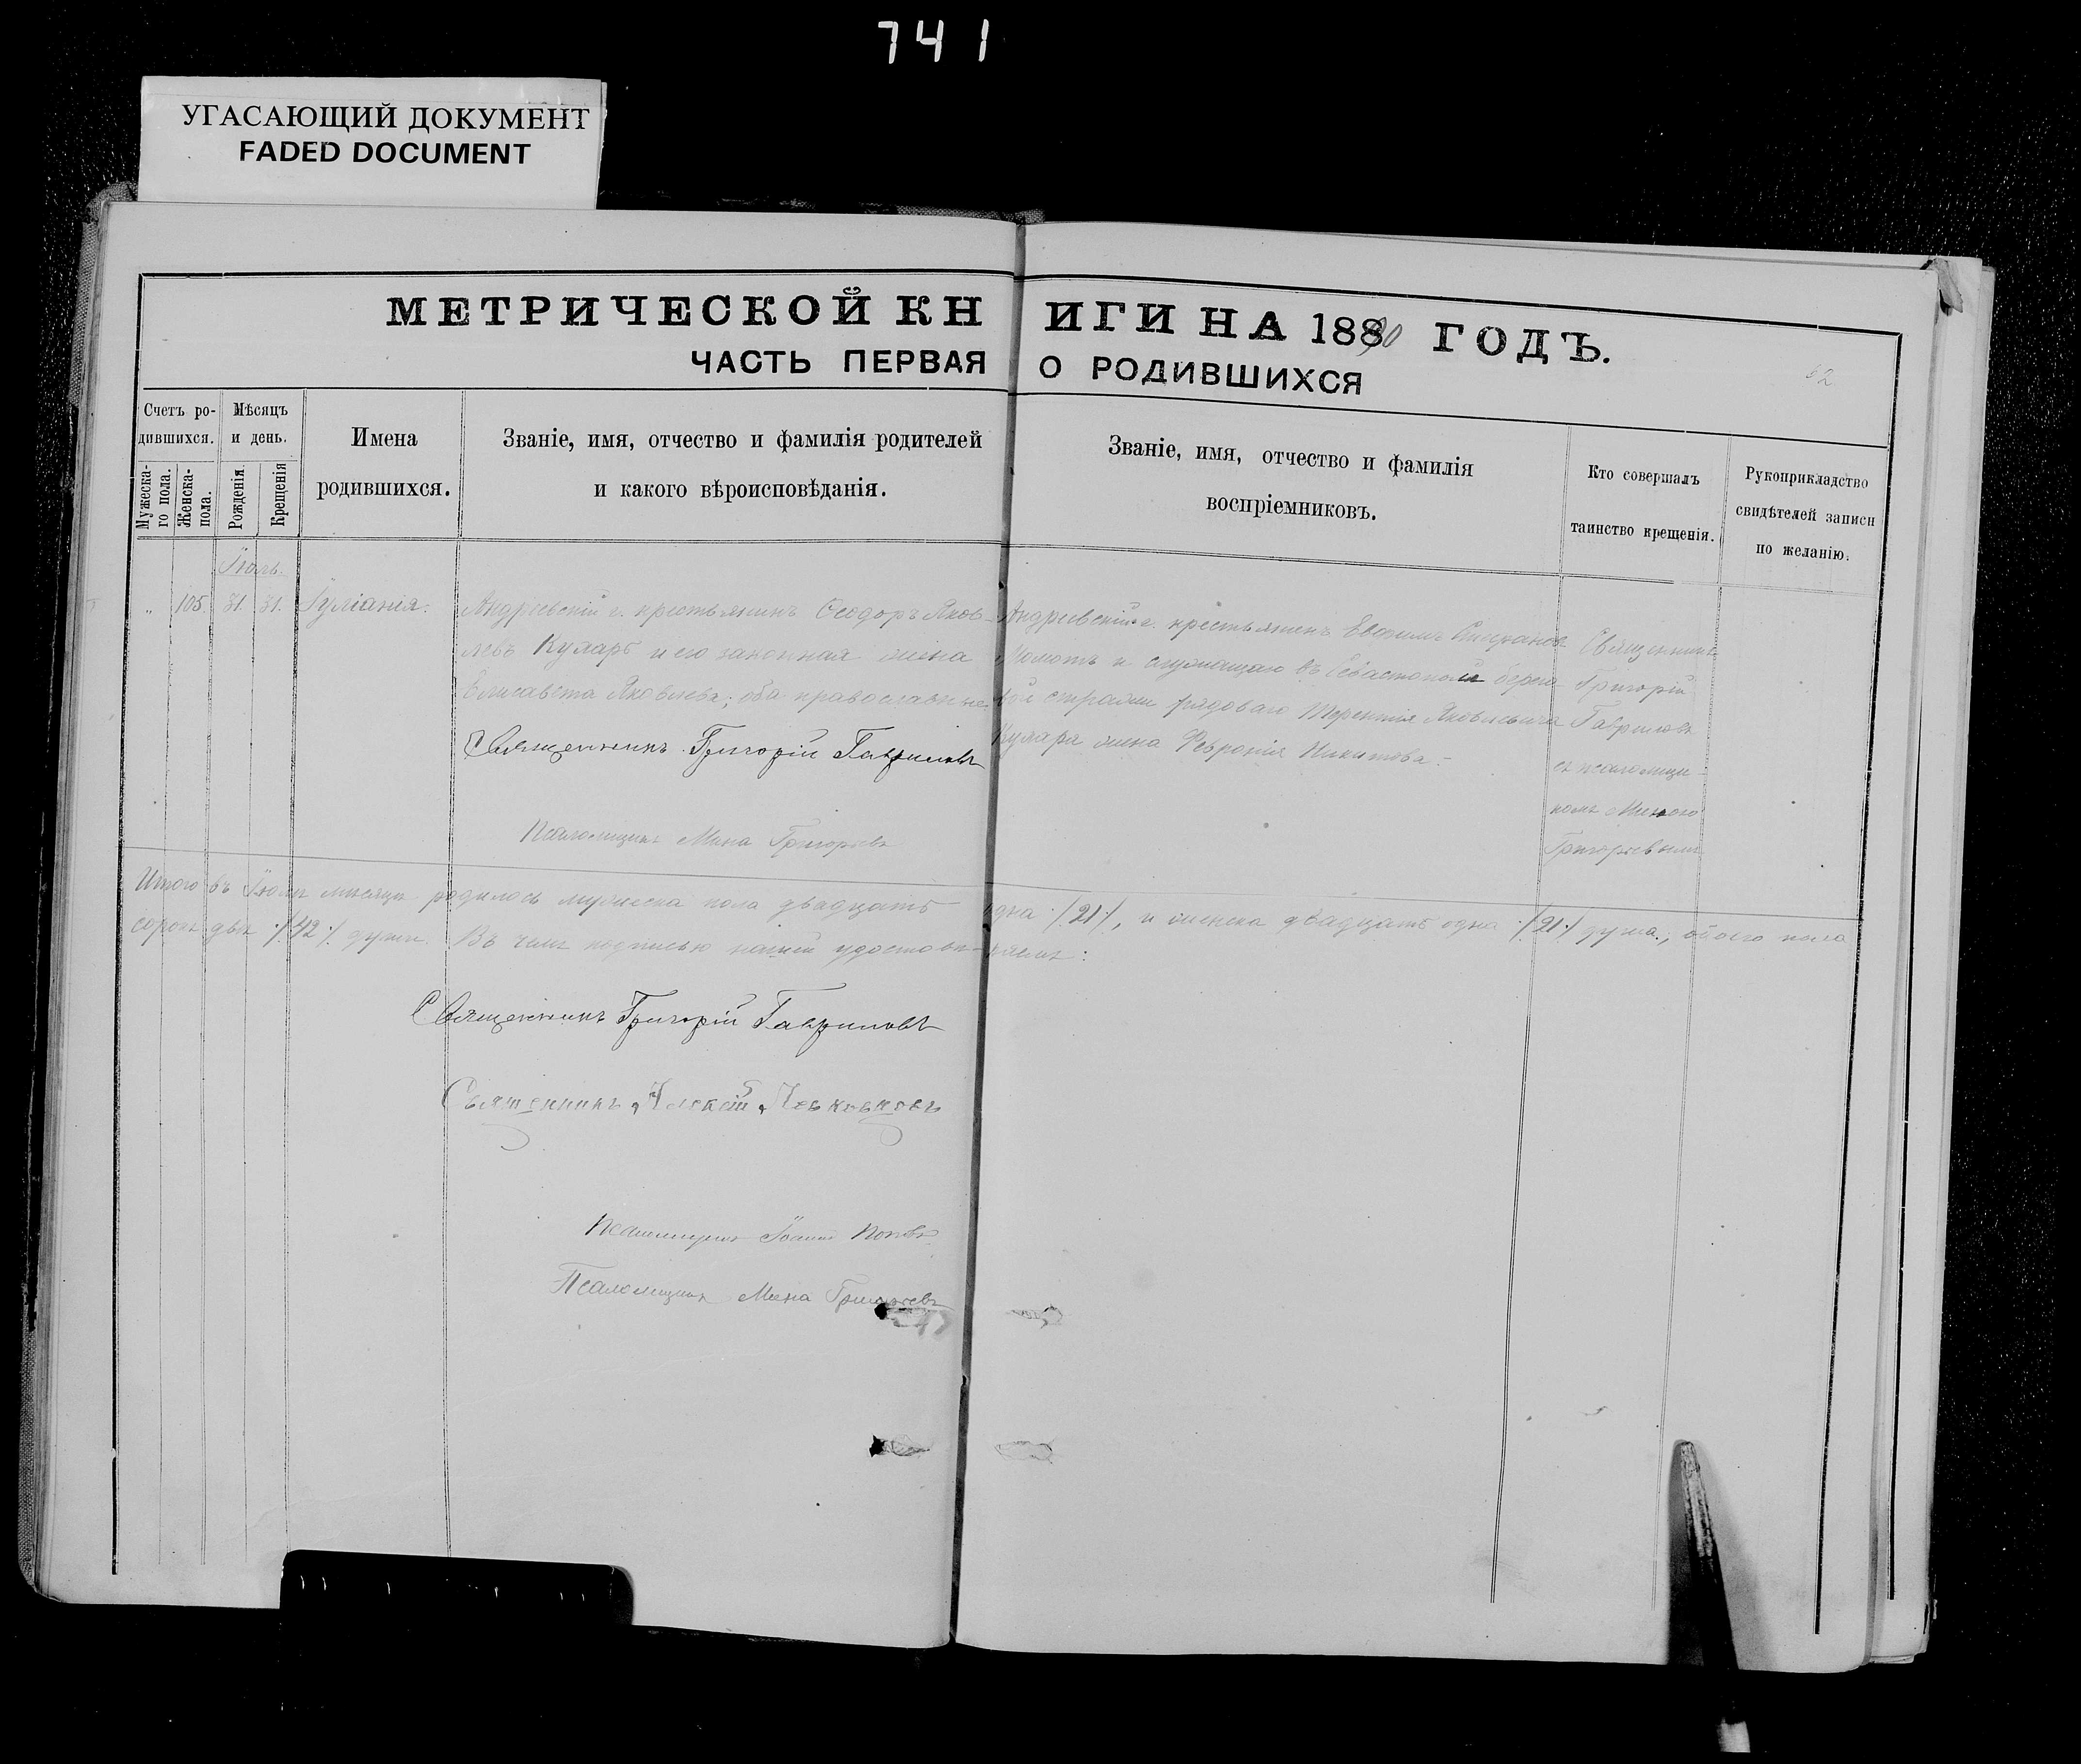 741
УГАСАЮЩИЙ ДОКУМЕНТ
FADED DOCUMENT
МЕТРИЧЕСКОЙ КНИГИ НА 1890 ГОДЪ.
ЧАСТЬ ПЕРВАЯ О РОДИВШИХСЯ
62
Счетъ ро-
дившихся.
Мужеска-
го пола.
Женска-
пола.
Мѣсяцъ
и день.
Рожденія.
Крещенія
Имена
родившихся.
Званіе, имя, отчество и фамилія родителей
и какого вѣроисповѣданія.
Званіе, имя, отчество и фамилія
воспріемниковъ.
Кто совершалъ
таинство крещенія.
Рукоприкладство
свидѣтелей записи
по желанію.
Іюль.
„ 105. 31. 31. Іуліанія.
Андрѣевскій г. крестьянинъ Ѳеодоръ Яков-
левъ Куларъ и его законная жена
Елисавета Яковлева; оба православные
Священникъ Григорій Гавриловъ
Псаломщикъ Мина Григорьевъ
Андрѣевскій г. крестьянинъ Евѳимъ Стефановъ
и служащаго въ Севастополѣ берего
вой стражи рядоваго Терентія Яковлевича
Кулара жена Февронія Никитова.
Священникъ
Григорій
Гавриловъ
съ псаломщи-
комъ Миною
Григорьевымъ
Итого въ Іюлѣ мѣсяцѣ родилось мужеска пола двадцать одна ·/.21·/., и женска двадцать одна ·/.21·/. душа., обоего пола
сорокъ двѣ ·/.42·/. души. Въ чемъ подписью нашей удостовѣ-ряемъ:
Священникъ Григорій Гавриловъ
Священникъ Алексій
Псаломщикъ Іоаннъ Поповъ
Псаломщикъ Мина Григорьевъ